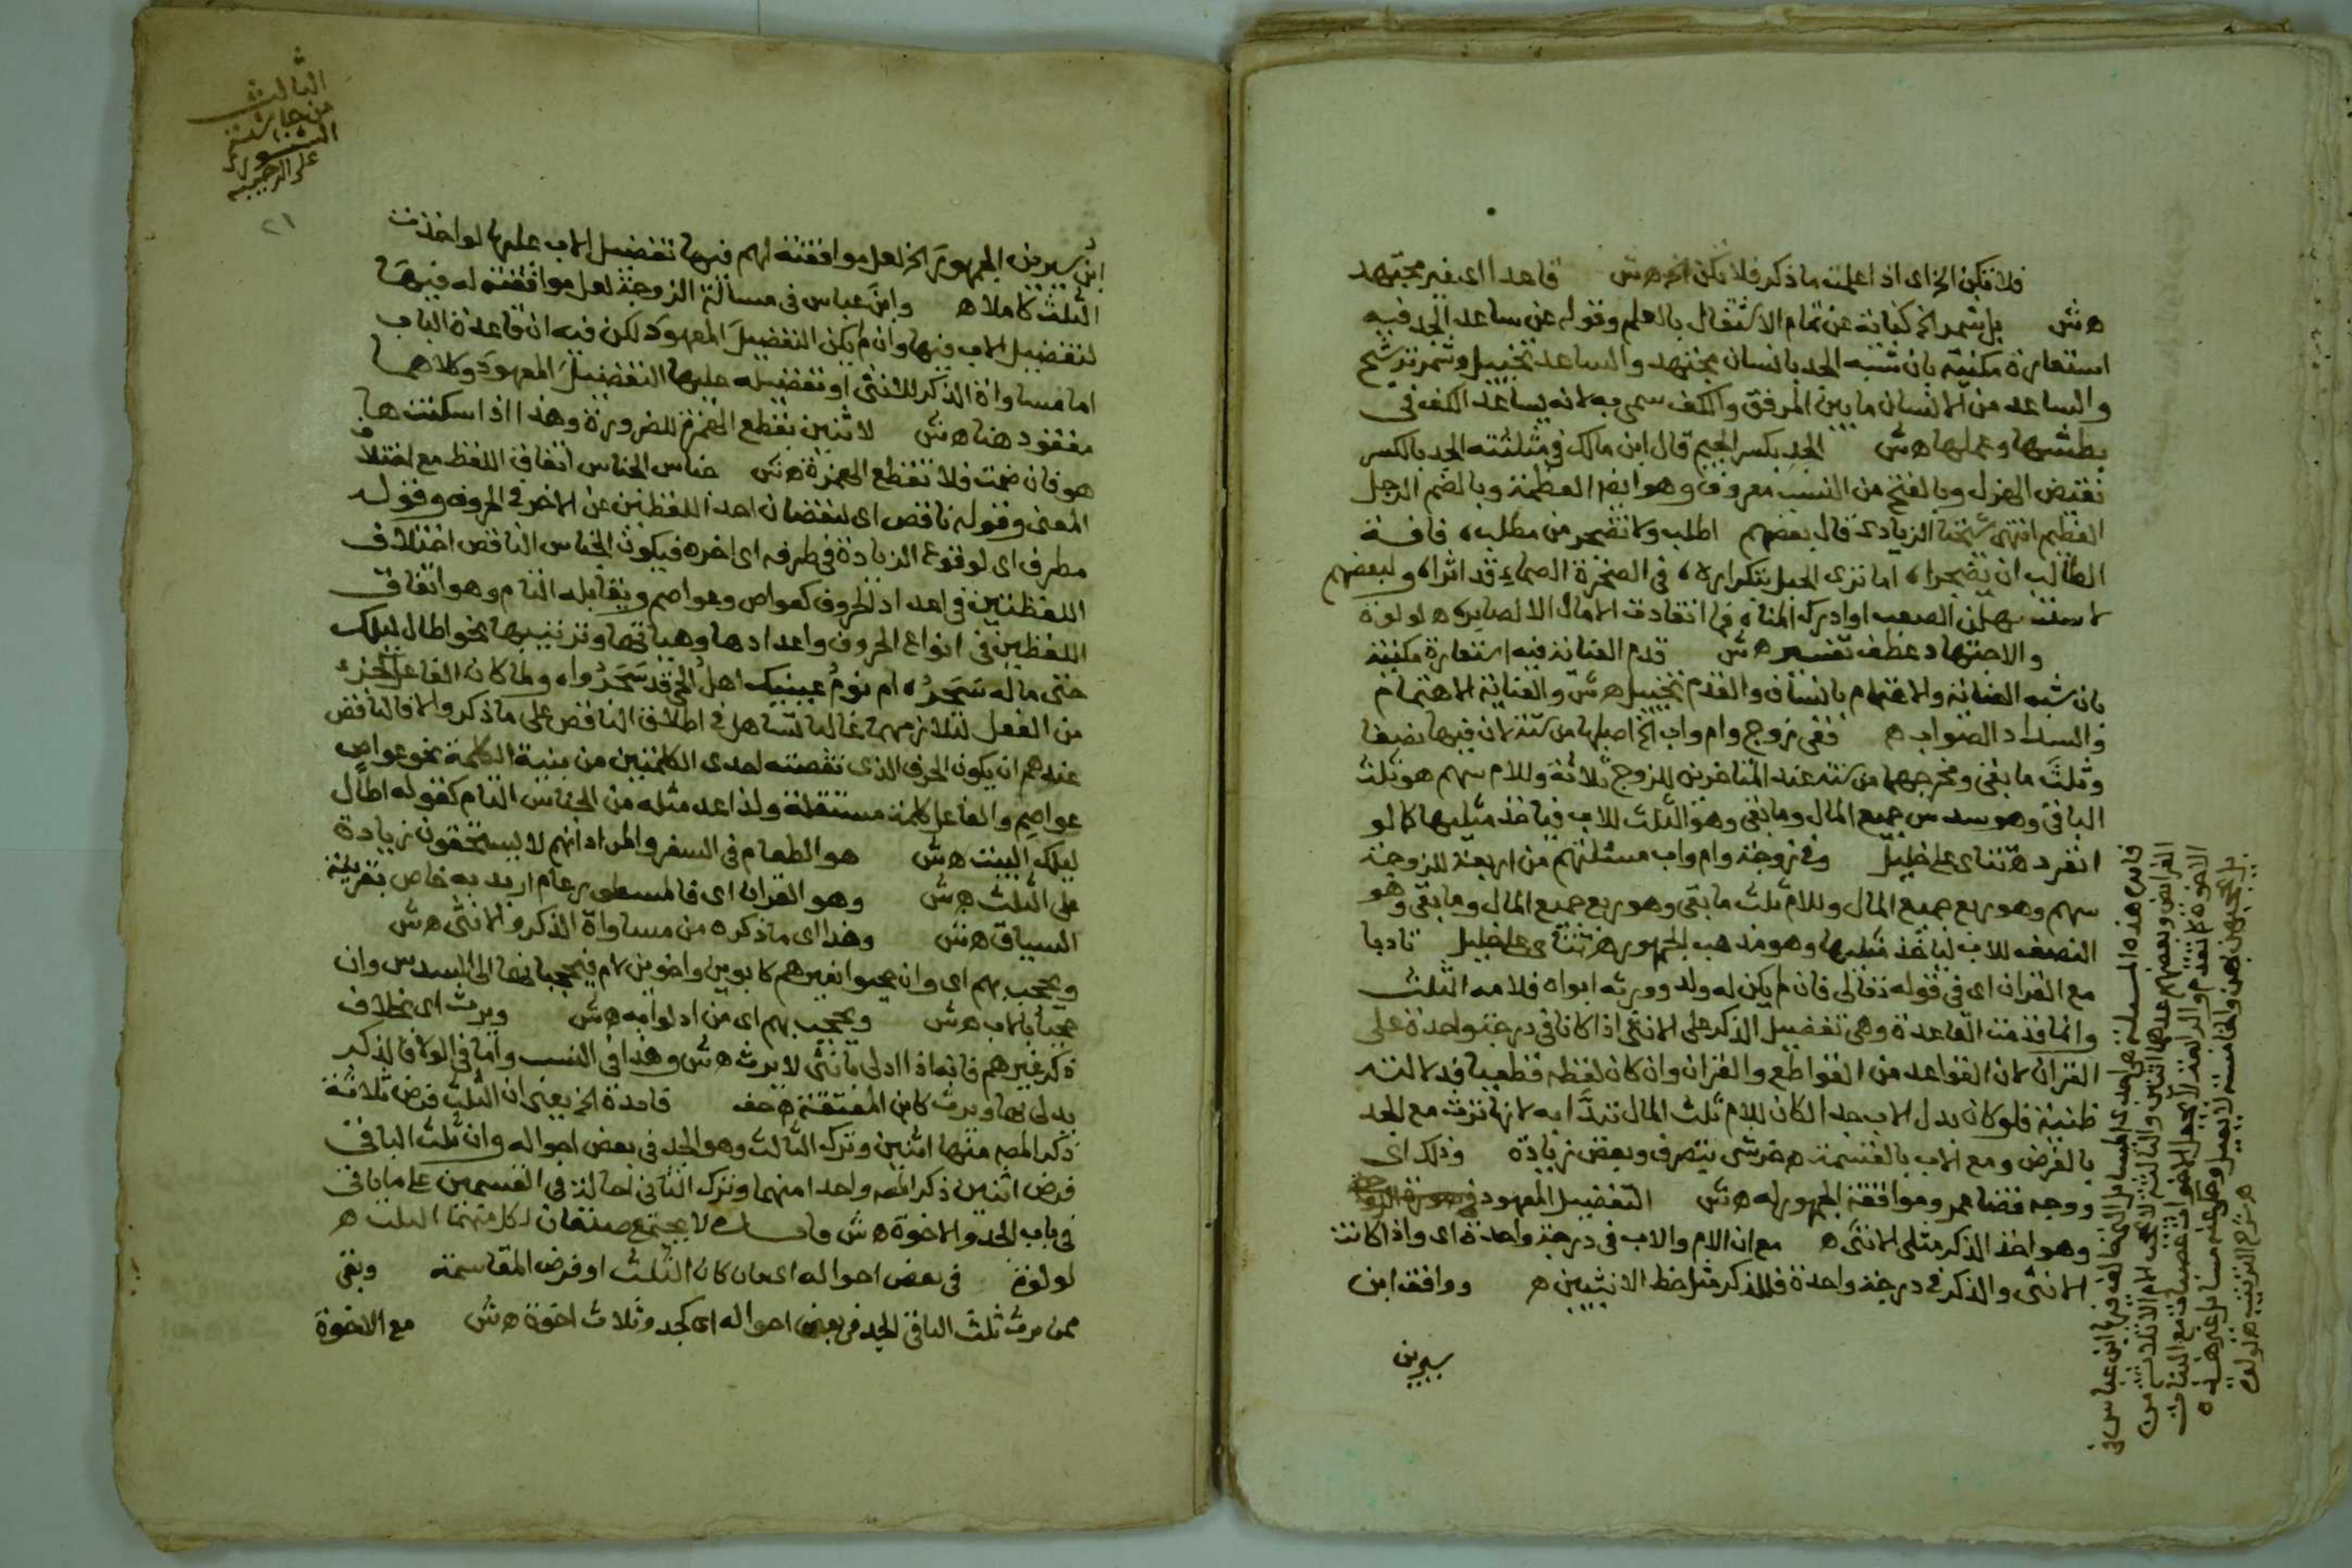 فلا تكن الخ اى اذا علمت ما ذكر فلا تكن الخ هش قاعدا اى غير مجتهد
هش بل شمر الخ كناية عن تمام الاشتغال بالعلم وقوله عن ساعد الجد فيه
استعارة مكنية بان شبه الجد بانسان مجتهد والساعد تخييل وشمر ترشيح
والساعد من الانسان ما بين المرفق والكف سمى به لانه يساعد الكف فى
بطشها وعملها هش الجد بكسر الجيم قال ابن مالك فى مثلثته الجد بالكسر
نقيض الهزل وبالفتح من النسب معروف وهو ايضا العظمة وبالضم الرجل
العظيم انتهى شيخنا الزيادى قال بعضهم اطلب ولا تضجر من مطلب، فافة
الطالب ان يضجرا، اما ترى الحبل بتكراره، فى الصخرة الصماء قد اثرا، ولبعضهم
لاستسهلن الصعب او ادرك المنا، فما انقادت الامال الا لصابر، ه لولوة
والاجتهاد عطف تفسير هش قدم العناية فيه استعارة مكنية
بان شبه العناية والاهتمام بانسان والقدم تخييل هش والعناية الاهتمام
والسداد الصواب ه ففى زوج وام واب الخ اصلها من ستة لان فيها نصفا
وثلث ما بقى ومخرجهما من ستة عند المتاخرين للزوج ثلاثة وللام سهم هو ثلث
الباقى وهو سدس جميع المال وما بقى وهو الثلث للاب فياخذ مثليها كما لو
انفرد ه تتاى على خليل وفى زوجة وام واب مسئلتهم من اربعة للزوجة
سهم وهو ربع جميع المال وللام ثلث ما بقى وهو ربع جميع المال وما بقى وهو
النصف للاب لياخذ مثليها وهو مذهب الجمهور ه تتاى على خليل تادبا
مع القران اى فى قوله تعالى فان لم يكن له ولد وورثه ابواه فلامه الثلث
وانما قدمت القاعدة وهى تفضيل الذكر على الانثى اذا كانا فى درجة واحدة على
القران لان القواعد من القواطع والقران وان كان لفظه قطعيا فدلالته
ظنية فلو كان بدل الاب جد الكان للام ثلث المال تبدا به لانها ترث مع الجد
بالفرض ومع الاب بالقسمة ه خرشى بتصرف وبعض زيادة وذلك اى
ووجه قضا عمر وموافقة الجمهور له هش التفضيل المعهود
وهو اخذ الذكر مثلى الانثى ه مع ان الام والاب فى درجة واحدة اى واذا كانت
الانثى والذكر فى درجة واحدة فللذكر مثل حظ الانثيين ه ووافقه ابن
سيرين
فايده هذه المسئلة احدى المسايل التى خالف فيها ابن عباس فى
الفرايض وبعضهم عدها اثنين والثالثة لا يحجب الام الا ثلاث من
الاخوة كما تقدم والرابعة لا يجعل الاخوات عصبات مع البنات
بل يحجبون بهن والخامسة لا يعيل وعلى عدمه مسايل غير هذه
ه شرح الترتيب ه لولوة
الثالث
من حاشية
الشنشورى
على الرحبية
٢١
ابن سيرين الجمهور الخ لعل موافقته لهم فيها تفضيل الاب عليها لو اخذت
الثلث كاملا ه وابن عباس فى مسألة الزوجة لعل موافقته له فيها
لتفضيل الاب فيها وان لم يكن التفضيل المعهود لكن فيه ان قاعدة الباب
اما مساواة الذكر للانثى او تفضيله عليها التفضيل المعهود وكلاهما
مفقود هنا هش لاثنين بقطع الهمزة للضرورة وهذا اذا سكنت ها
هو فان ضمت فلا تقطع الهمزة هش جناس الجناس اتفاق اللفظ مع اختلاف
المعنى وقوله ناقص اى لنقصان احد اللفظين عن الاخر فى الحروف وقوله
مطرف اى لوقوع الزيادة فى طرفه اى اخره فيكون الجناس الناقص اختلاف
اللفظتين فى اعداد الحروف كعواص وعواصم ويقابله التام وهو اتفاق
اللفظين فى انواع الحروف واعدادها وهياتها وترتيبها نحو اطال ليلك
حتى ماله سحر، ام نوم عينيك اهل الحى قد سحروا، ولما كان الفاعل كالجزء
من الفعل لتلازمهما غالبا تساهل فى اطلاق الناقص على ما ذكر والا فالناقص
عندهم ان يكون الحرف الذى نقصته احدى الكلمتين من بنية الكلمة نحو عواص
عواصم والفاعل كلمة مستقلة ولذا عد مثله من الجناس التام كقوله اطال
ليلك البيت هش هو الطعام فى السفر والمراد انهم لا يستحقون زيادة
على الثلث هش وهو القران اى فالمسطور عام اريد به خاص بقرينة
السياق هش وهذا اى ما ذكره من مساواة الذكر والانثى هش
ويحجب بهم اى وان حجبوا بغيرهم كابوين واخوين لام فيحجبانها الى السدس وان
حجبا بالاب هش ويحجب بهم اى من ادلوا به هش ويرث اى بخلاف
ذكر غيرهم فانه اذا ادلى بانثى لا يرث هش وهذا فى النسب واما فى الولا فالذكر
يدلى بها ويرث كابن المعتقة ه حف قاعدة الخ يعنى ان الثلث فرض ثلاثة
ذكر المص منها اثنين وترك الثالث وهو الجد فى بعض احواله وان ثلث الباقى
فرض اثنين ذكر المص واحدا منهما وترك الثانى احالة فى القسمين على ما ياتى
فى باب الجد والاخوة هش لا يجتمع صنفان لكل منهما الثلث ه
لولوة فى بعض احواله اى بان كان الثلث او فرض المقاسمة وبقى
ممن يرث ثلث الباقى الجد فى بعض احواله اى كجد وثلاث اخوة هش مع الاخوة